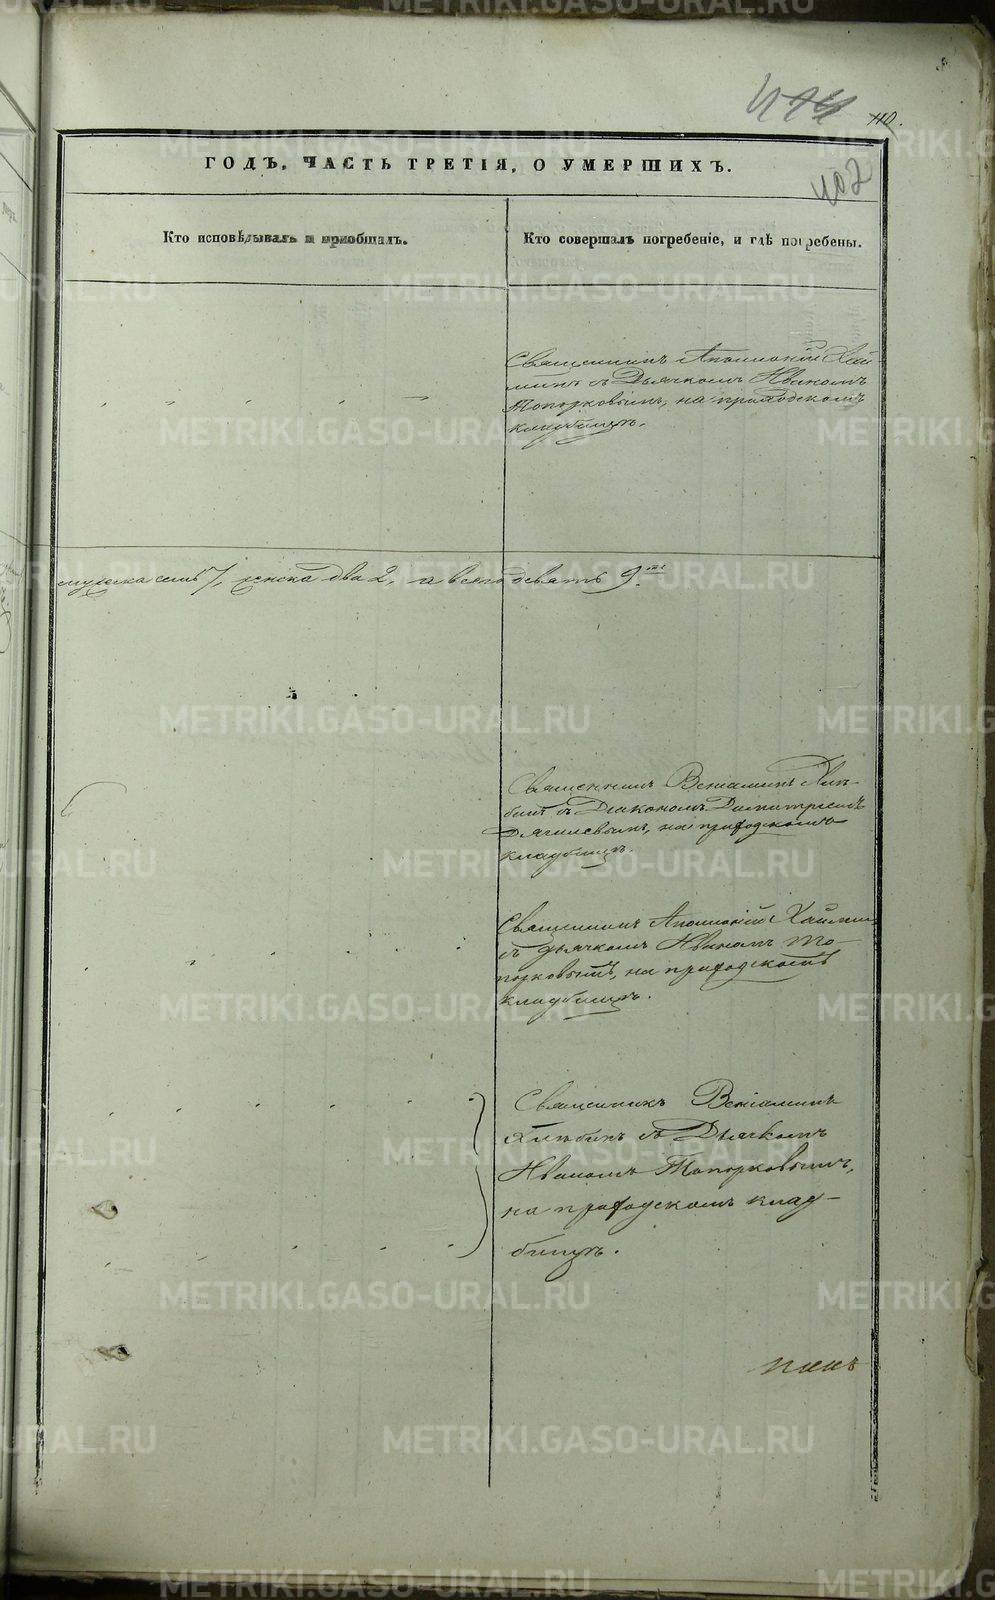 110.
402
ГОДЪ, ЧАСТЬ ТРЕТІЯ, О УМЕРШИХЪ.
Кто исповѣдывалъ и пріобщалъ.
Кто совершалъ погребеніе, и гдѣ погребены.
Священникъ Аполлоній Хай
минъ съ Дьячкомъ Иваномъ
Топорковымъ, на приходскомъ
кладбищѣ.
мужеска семь 7, женска два 2, а всего девять 9.
Священникъ Веніаминъ
съ Діакономъ Димитріемъ
на приходскомъ
кладбищѣ.
Священникъ Аполлоній Хайминъ
съ дьячкомъ Иваномъ То-
порковымъ, на приходскомъ
кладбищѣ.
Священникъ Веніаминъ
съ Дьячкомъ
Иваномъ Топорковымъ,
на приходскомъ клад-
бищѣ.
METRIKI.GASO-URAL.RU